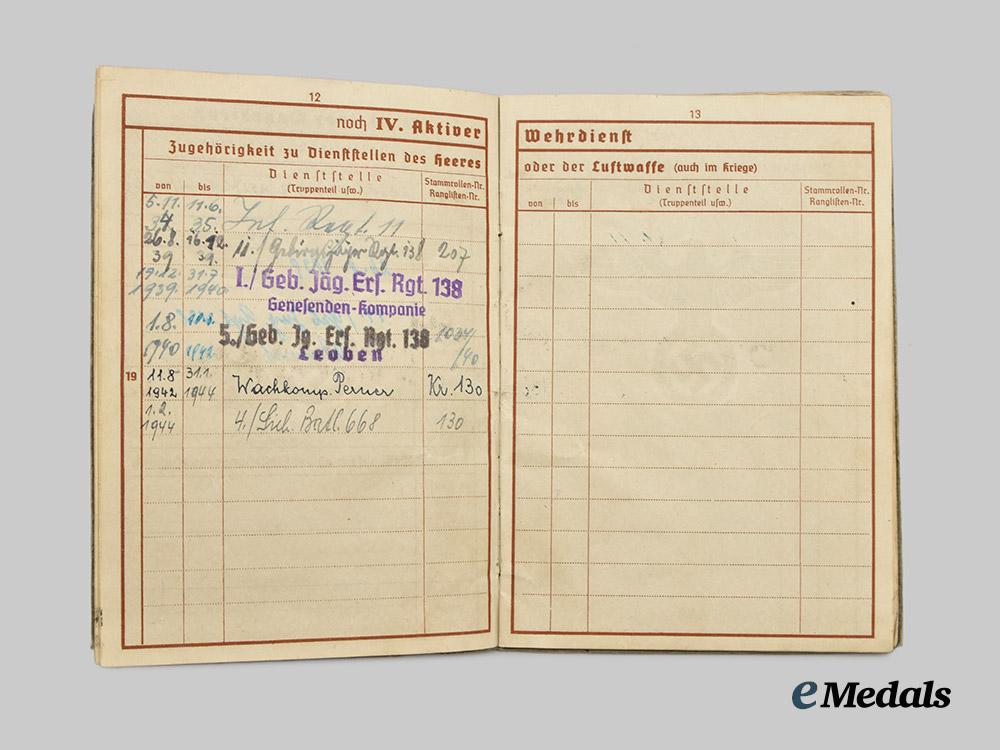 12
noch IV. Aktiver
Zugehörigkeit zu Dienststellen des Heeres
von bis Dienststelle (Truppenteil usw.) Stammrollen-Nr. Ranglisten-Nr.
5.11. 11.6.
34 35. Inf. Regt. 11
26.8. 16.12.
39 39. 11./Gebirgsjäger Regt. 138 207
19.12. 31.7.
1939 1940 I./Geb. Jäg. Ers. Rgt. 138
Genesenden-Kompanie
1.8. 5./Geb. Jg. Ers. Rgt. 138
1940 1942 Leoben /40
19 11.8 31.1.
1942 1944 Wachkomp. Perner Kr. 130
1.2.
1944 4./Sich. Batl. 668 130
13
Wehrdienst
oder der Luftwaffe (auch im Kriege)
von bis Dienststelle (Truppenteil usw.) Stammrollen-Nr. Ranglisten-Nr.
eMedals